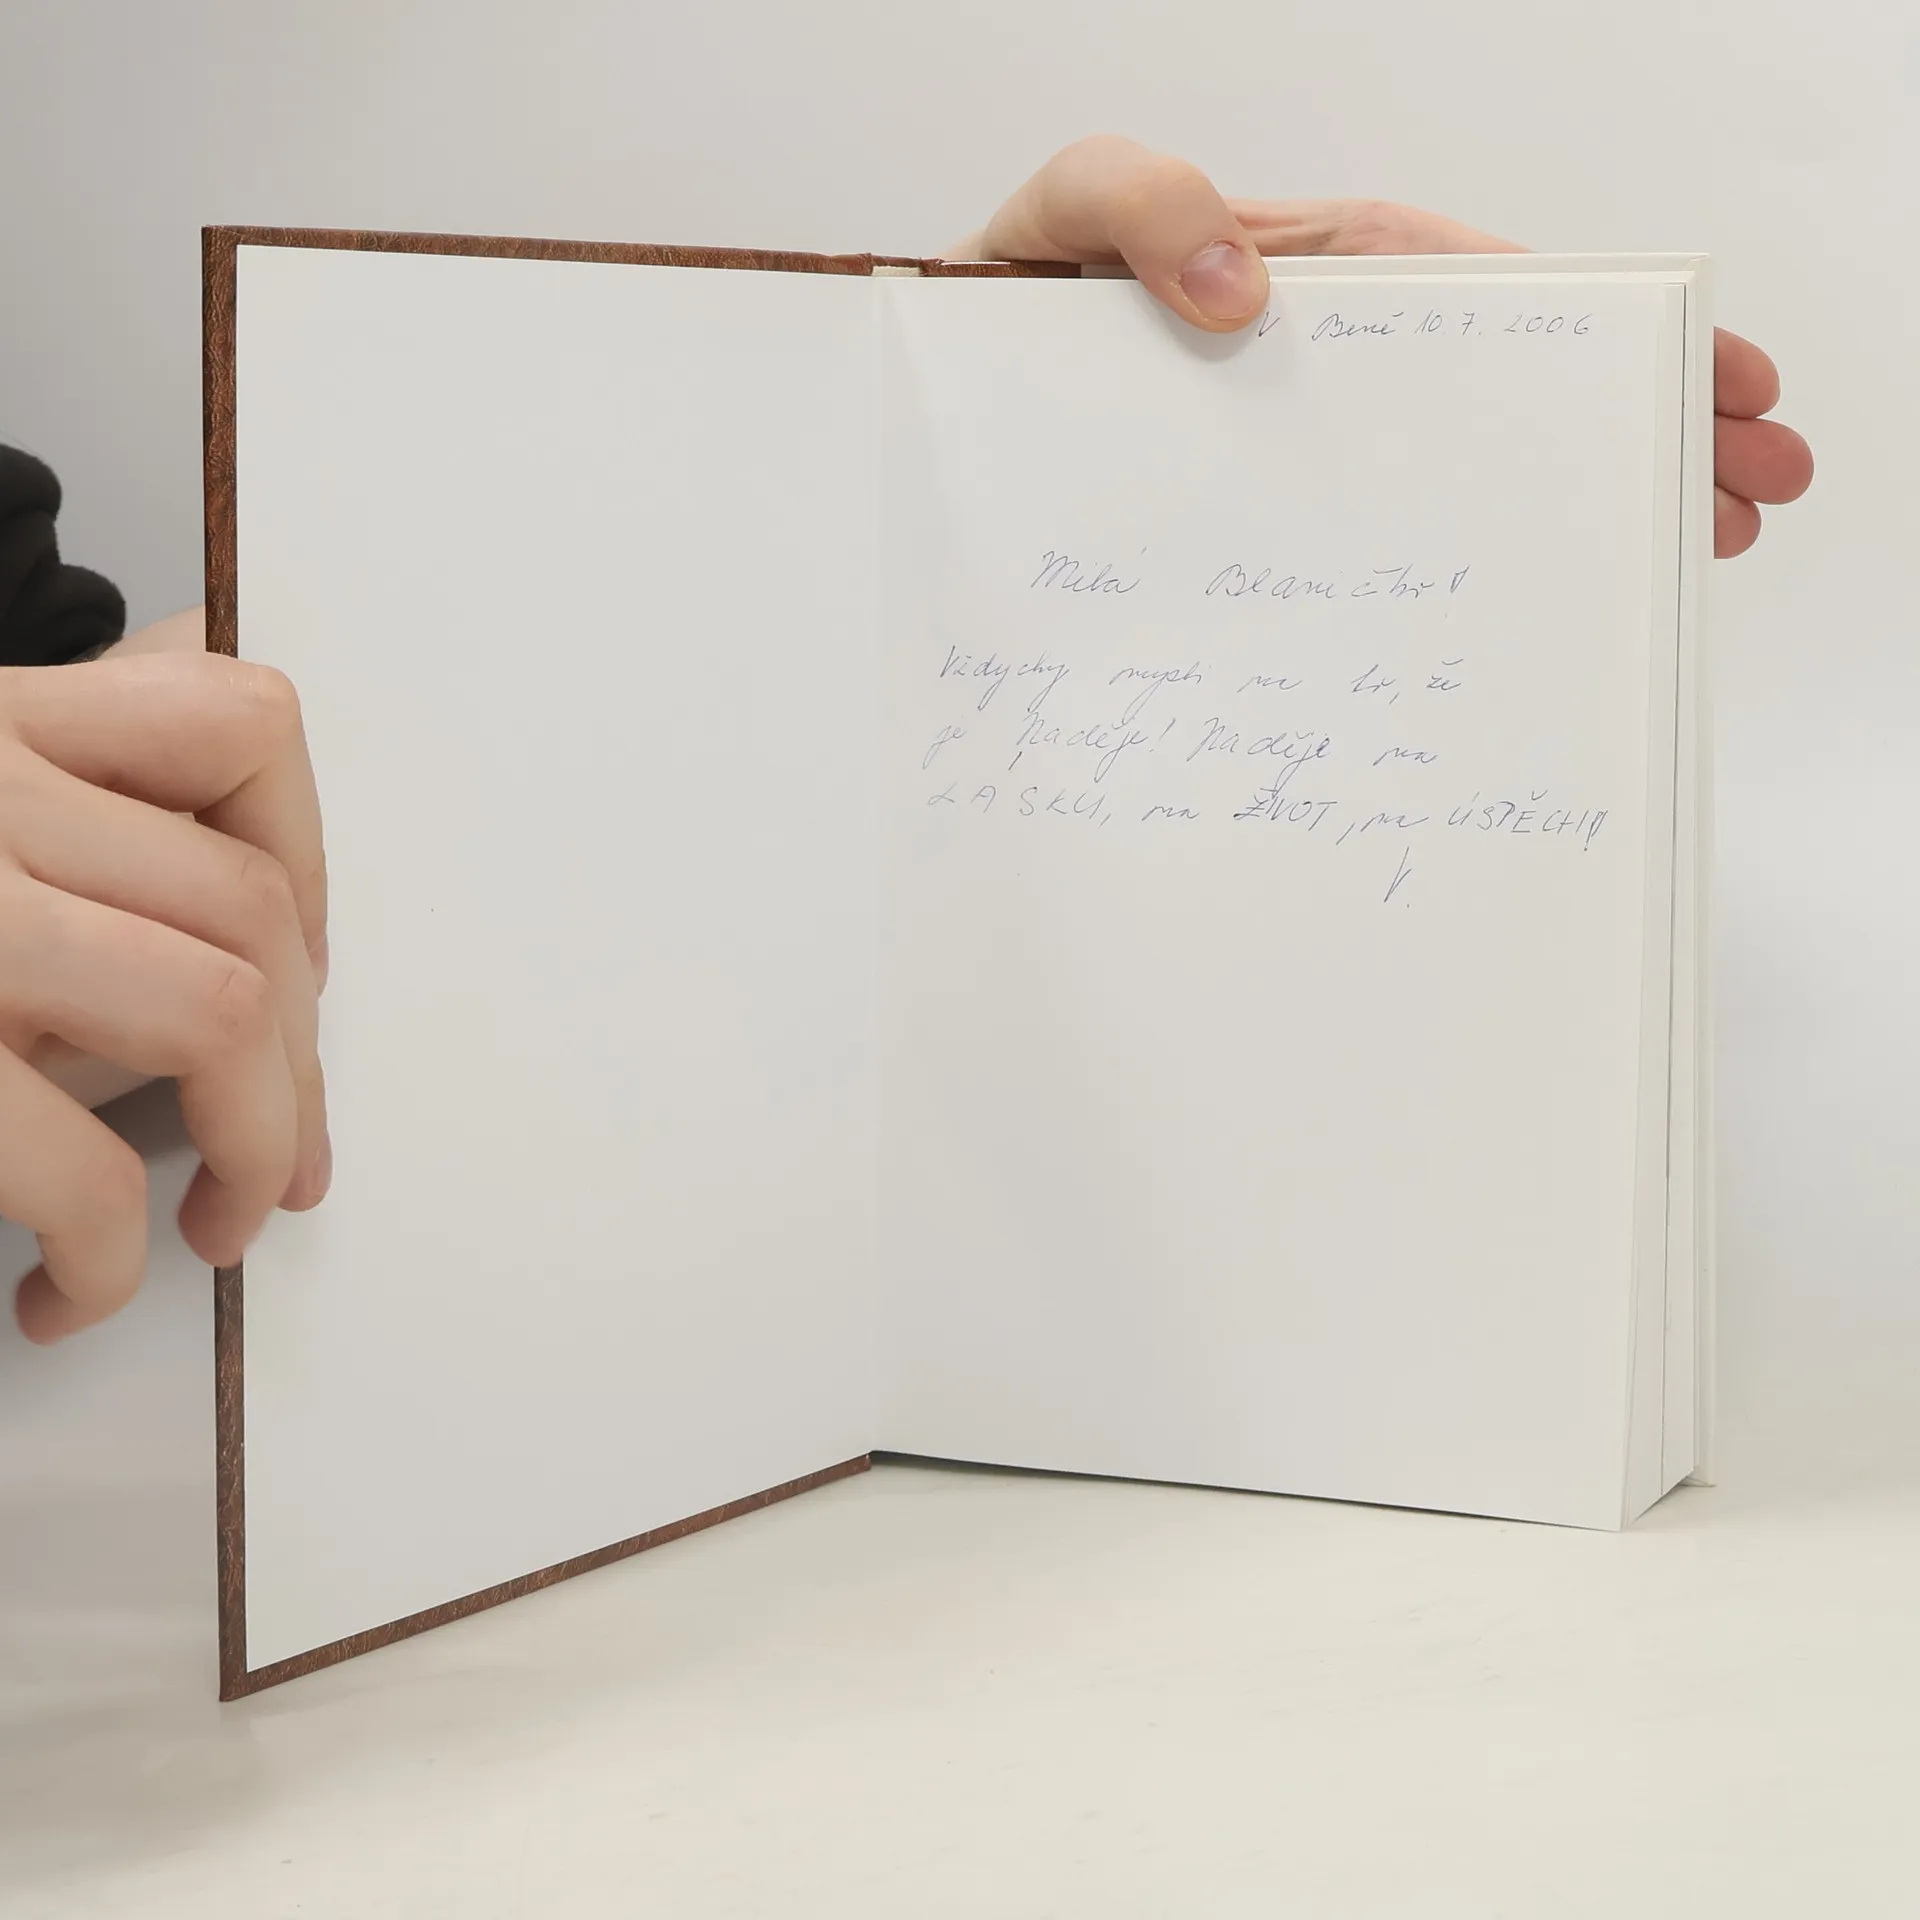 V Brně 10. 7. 2006
Milá Blaničko!
Vždycky mysli na to, že
je Naděje! Naděje na
LÁSKU, na ŽIVOT, na ÚSPĚCH!
V.